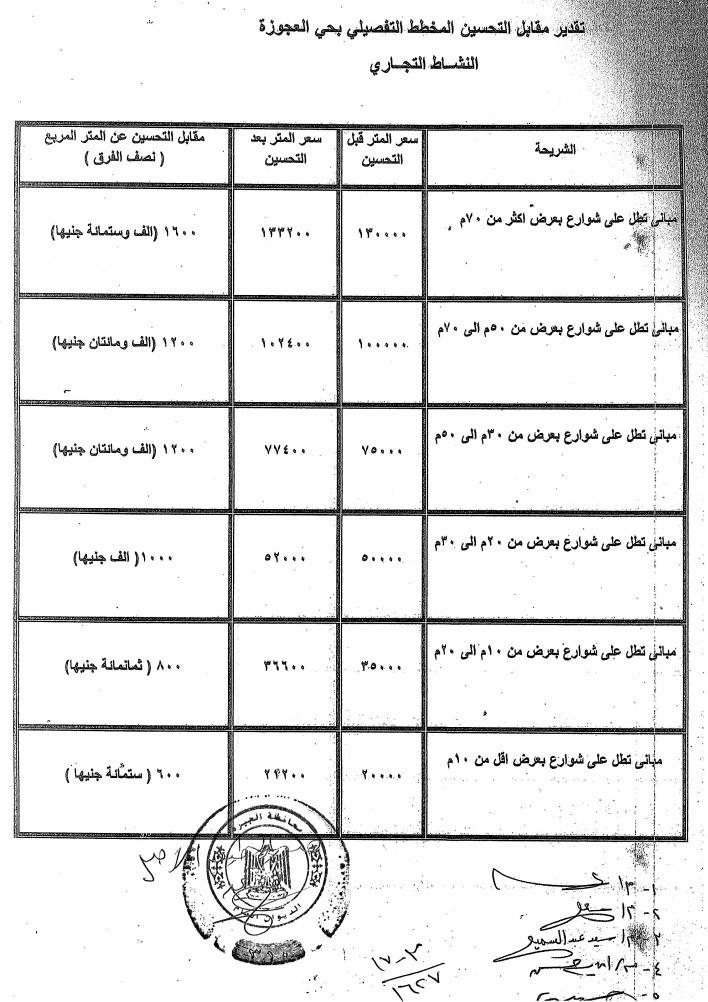 تقدير مقابل التحسين المخطط التفصيلي بحي العجوزة
النشـاط التجـاري
الشريحة | سعر المتر قبل التحسين | سعر المتر بعد التحسين | مقابل التحسين عن المتر المربع ( نصف الفرق )
مبانى تطل على شوارع بعرض اكثر من ٧٠م | ١٣٠٠٠٠ | ١٣٣٢٠٠ | ١٦٠٠ (الف وستمائة جنيها)
مبانى تطل على شوارع بعرض من ٥٠م الى ٧٠م | ١٠٠٠٠٠ | ١٠٢٤٠٠ | ١٢٠٠ (الف ومائتان جنيها)
مبانى تطل على شوارع بعرض من ٣٠م الى ٥٠م | ٧٥٠٠٠ | ٧٧٤٠٠ | ١٢٠٠ (الف ومائتان جنيها)
مبانى تطل على شوارع بعرض من ٢٠م الى ٣٠م | ٥٠٠٠٠ | ٥٢٠٠٠ | ١٠٠٠( الف جنيها)
مبانى تطل على شوارع بعرض من ١٠م الى ٢٠م | ٣٥٠٠٠ | ٣٦٦٠٠ | ٨٠٠ ( ثمانمائة جنيها)
مبانى تطل على شوارع بعرض اقل من ١٠م | ٢٠٠٠٠ | ٢٤٢٠٠ | ٦٠٠ ( ستمائة جنيها )
محافظة الجيزة
الديوان العام
١-
٢-
٣- سيد عبد السميع
٤-
٥-